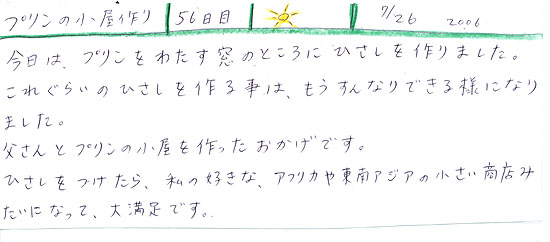 プリンの小屋作り 56日目 7/26 2006
今日は、プリンをわたす窓のところにひさしを作りました。
これぐらいのひさしを作る事は、もうすんなりできる様になり
ました。
父さんとプリンの小屋を作ったおかげです。
ひさしをつけたら、私の好きな、アフリカや東南アジアの小さい商店み
たいになって、大満足です。